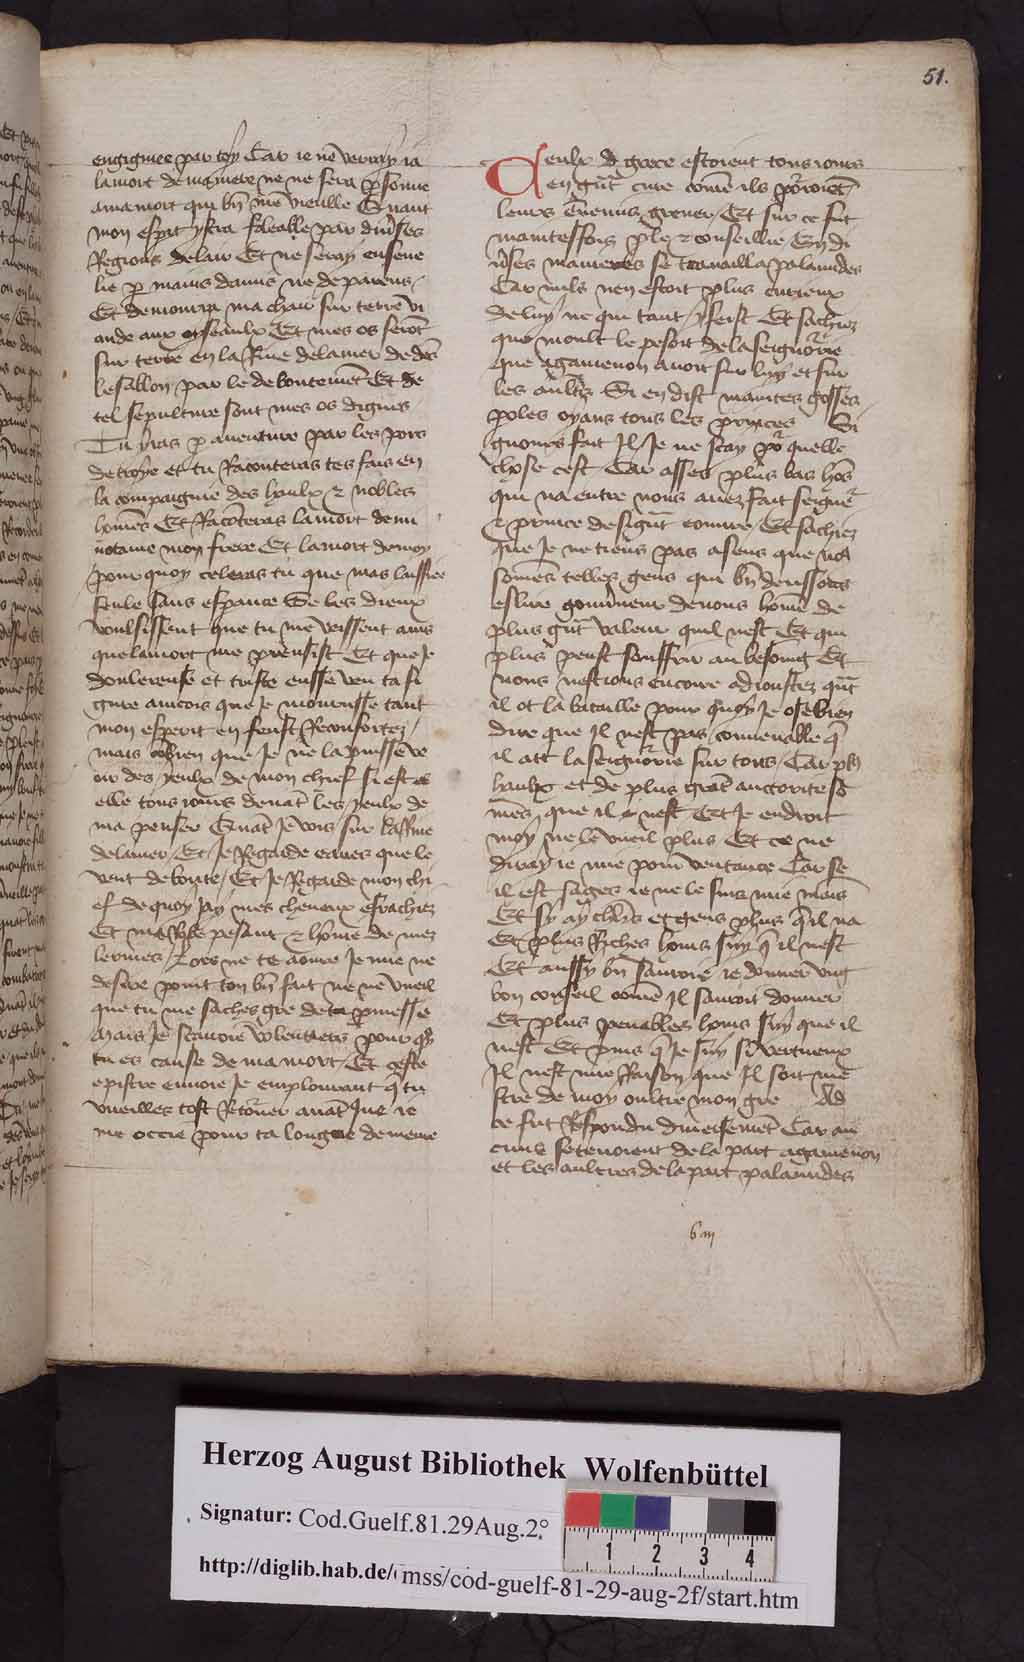 51.
engigniee par toy Car ie nē verray ia
la mort de ma mere ne ne sera psonne
a ma mort qui bn̄ me vueille Quant
mon esprit ystra foleable par diūses
Regions de lair Et ne seray enseue
lie p mains damis ne de parens /
Et demourra ma char sur terre vi
ande aux oyseaulx Et mes os serōt
sur terre en la Riue de la mer dedēs
le sablon par le deboutemēt Et de
tel sepulture sont mes os dignes
Tu yras p auenture par les pors
de troye et tu Raconteras tes fais en
la compaignie des haulx z nobles
hōmes Et Racōteras la mort de mi
notaure mon frere Et la mort de moy
pour quoy celeras tu que mas laissiee
seule sans espance Se les dieux
voulsissent que tu me veisses ains
que la mort me prensist Et que Je
doulereuse et triste eusse veu ta fi
gure aincois que Je mourusse tant
mon esperit en feust Reconfortez /
mais cōbien que Je ne la puisse ve
oir des yeulx de mon chief si est
elle tous iours deuāt les yeulx de
ma pensee Quāt Je vois sur la Riue
de la mer / Et Je Regarde eaues que le
vent deboute / Et Je Regarde mon chi
ef de quoy Jay mes cheueux esrachiez
Et ma Robe pesant z humē de mes
lermes / Lors ne te aoure Je mie ne
desire point ton bn̄ fait ne nē vueil
que tu me saches gre de ta pmesse
Mais Je scauoie voulentiers pour qͦy
tu es cause de ma mort / Et ceste
epistre enuoie Je emplourant q̄ tu
vueilles tost Retōrner auāt que ie
me occie pour ta longue demeure
Ceulx de grece estoient tous iours
en gūt cure cōmē ils pōrroiēt
leurs ēnemis greuer / Et sur ce fut
maintesfois ple z conseillie En di
ūses manieres se trauailla palamides
Car nuls nen estoit plus curieux
de luy ne qui tant y feist Et sachiez
que moult le pesoit de la seignōrie
que agamenon auoit sur luy et sur
les aūltrez Si en dist maintez gosses
poles oyans tous les princes Si
gnours fait Il Je ne scay pōr quelle
chose cest Car asses plus bas hōs
qui na entre nous auez fait seignē
z prince de signt eommre / Et sachiez
que Je ne tiens pas a sens que noꝯ
sōmes telles gens qui bn̄ deussons
eslire gouūneur de nous hōme de
plus gūt valeur quil nest Et qui
plus peust souffrir au besoing Et
nous nestions encore adioustez qūt
il ot la bataille pour quoy Je ose bien
dire que Il nest pas conuenable q̄
il att la seignōrie sur tous / Car plꝯ
haulx et de plus grāt auctorite sō
mēs que il nest Et Je endroit
moy ne le vueil plus Et ce ne
diray ie mie pour ventance Car se
il est sages ie ne le suis mie moīs
Et sy ay chlrs et gens plus q̄ il na
Et plus Riches homs suy q̄ il nest
Et aussy bn̄ sauroie ie donner vng
bon conseil cōme Il sauroit donner
Et plus penables homs suy que il
nest Et puis q̄ Je suy si vertueux
Il nest mie Raison que Il soit me
stre de moy oultre mon gre Ad
ce fut Respondu diuersemēt Car au
cuns se tenoient de la part agamenon
et les aultres de la part palamides
b iii
Herzog August Bibliothek Wolfenbüttel
Signatur: Cod.Guelf.81.29Aug.2°
http://diglib.hab.de/mss/cod-guelf-81-29-aug-2f/start.htm
1 2 3 4